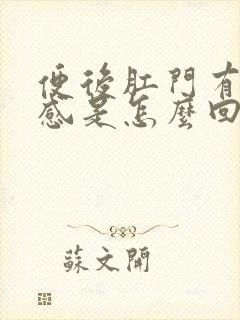 便後肛門有
感是怎麼回
蘇文開